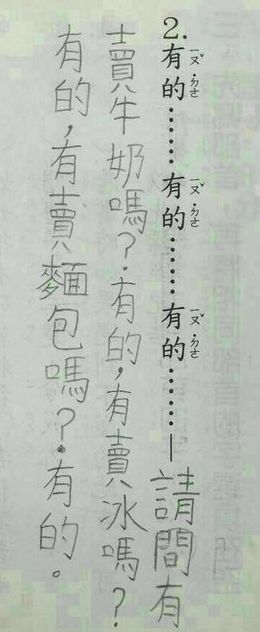 2.有的⋯⋯有的⋯⋯有的⋯⋯—請問有
賣牛奶嗎？有的，有賣冰嗎？
有的，有賣麵包嗎？有的。